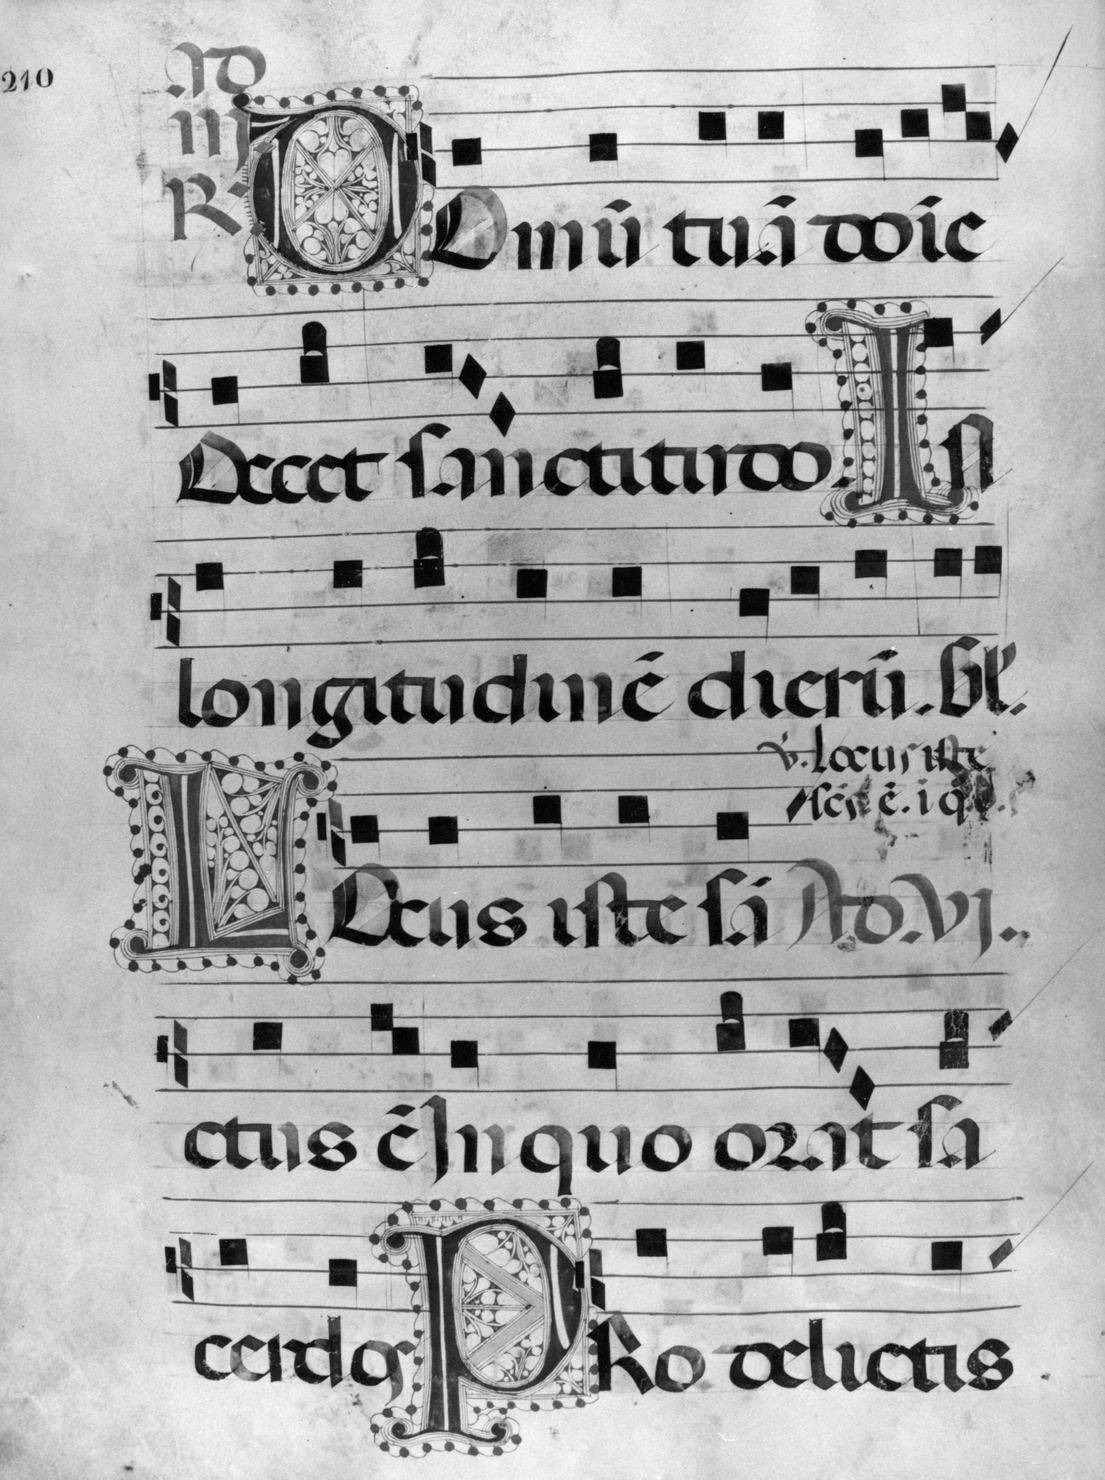 210
AD
iij
R.
DOmū tuā doīe
Decet sanctitudo. In
longitudinē dierū. Gl'.
℣. Locus iste
scs ē. i q̄
LOcus iste sā AD. VJ.
ctus ē Jn quo orat sa
cerdos PRo delictis